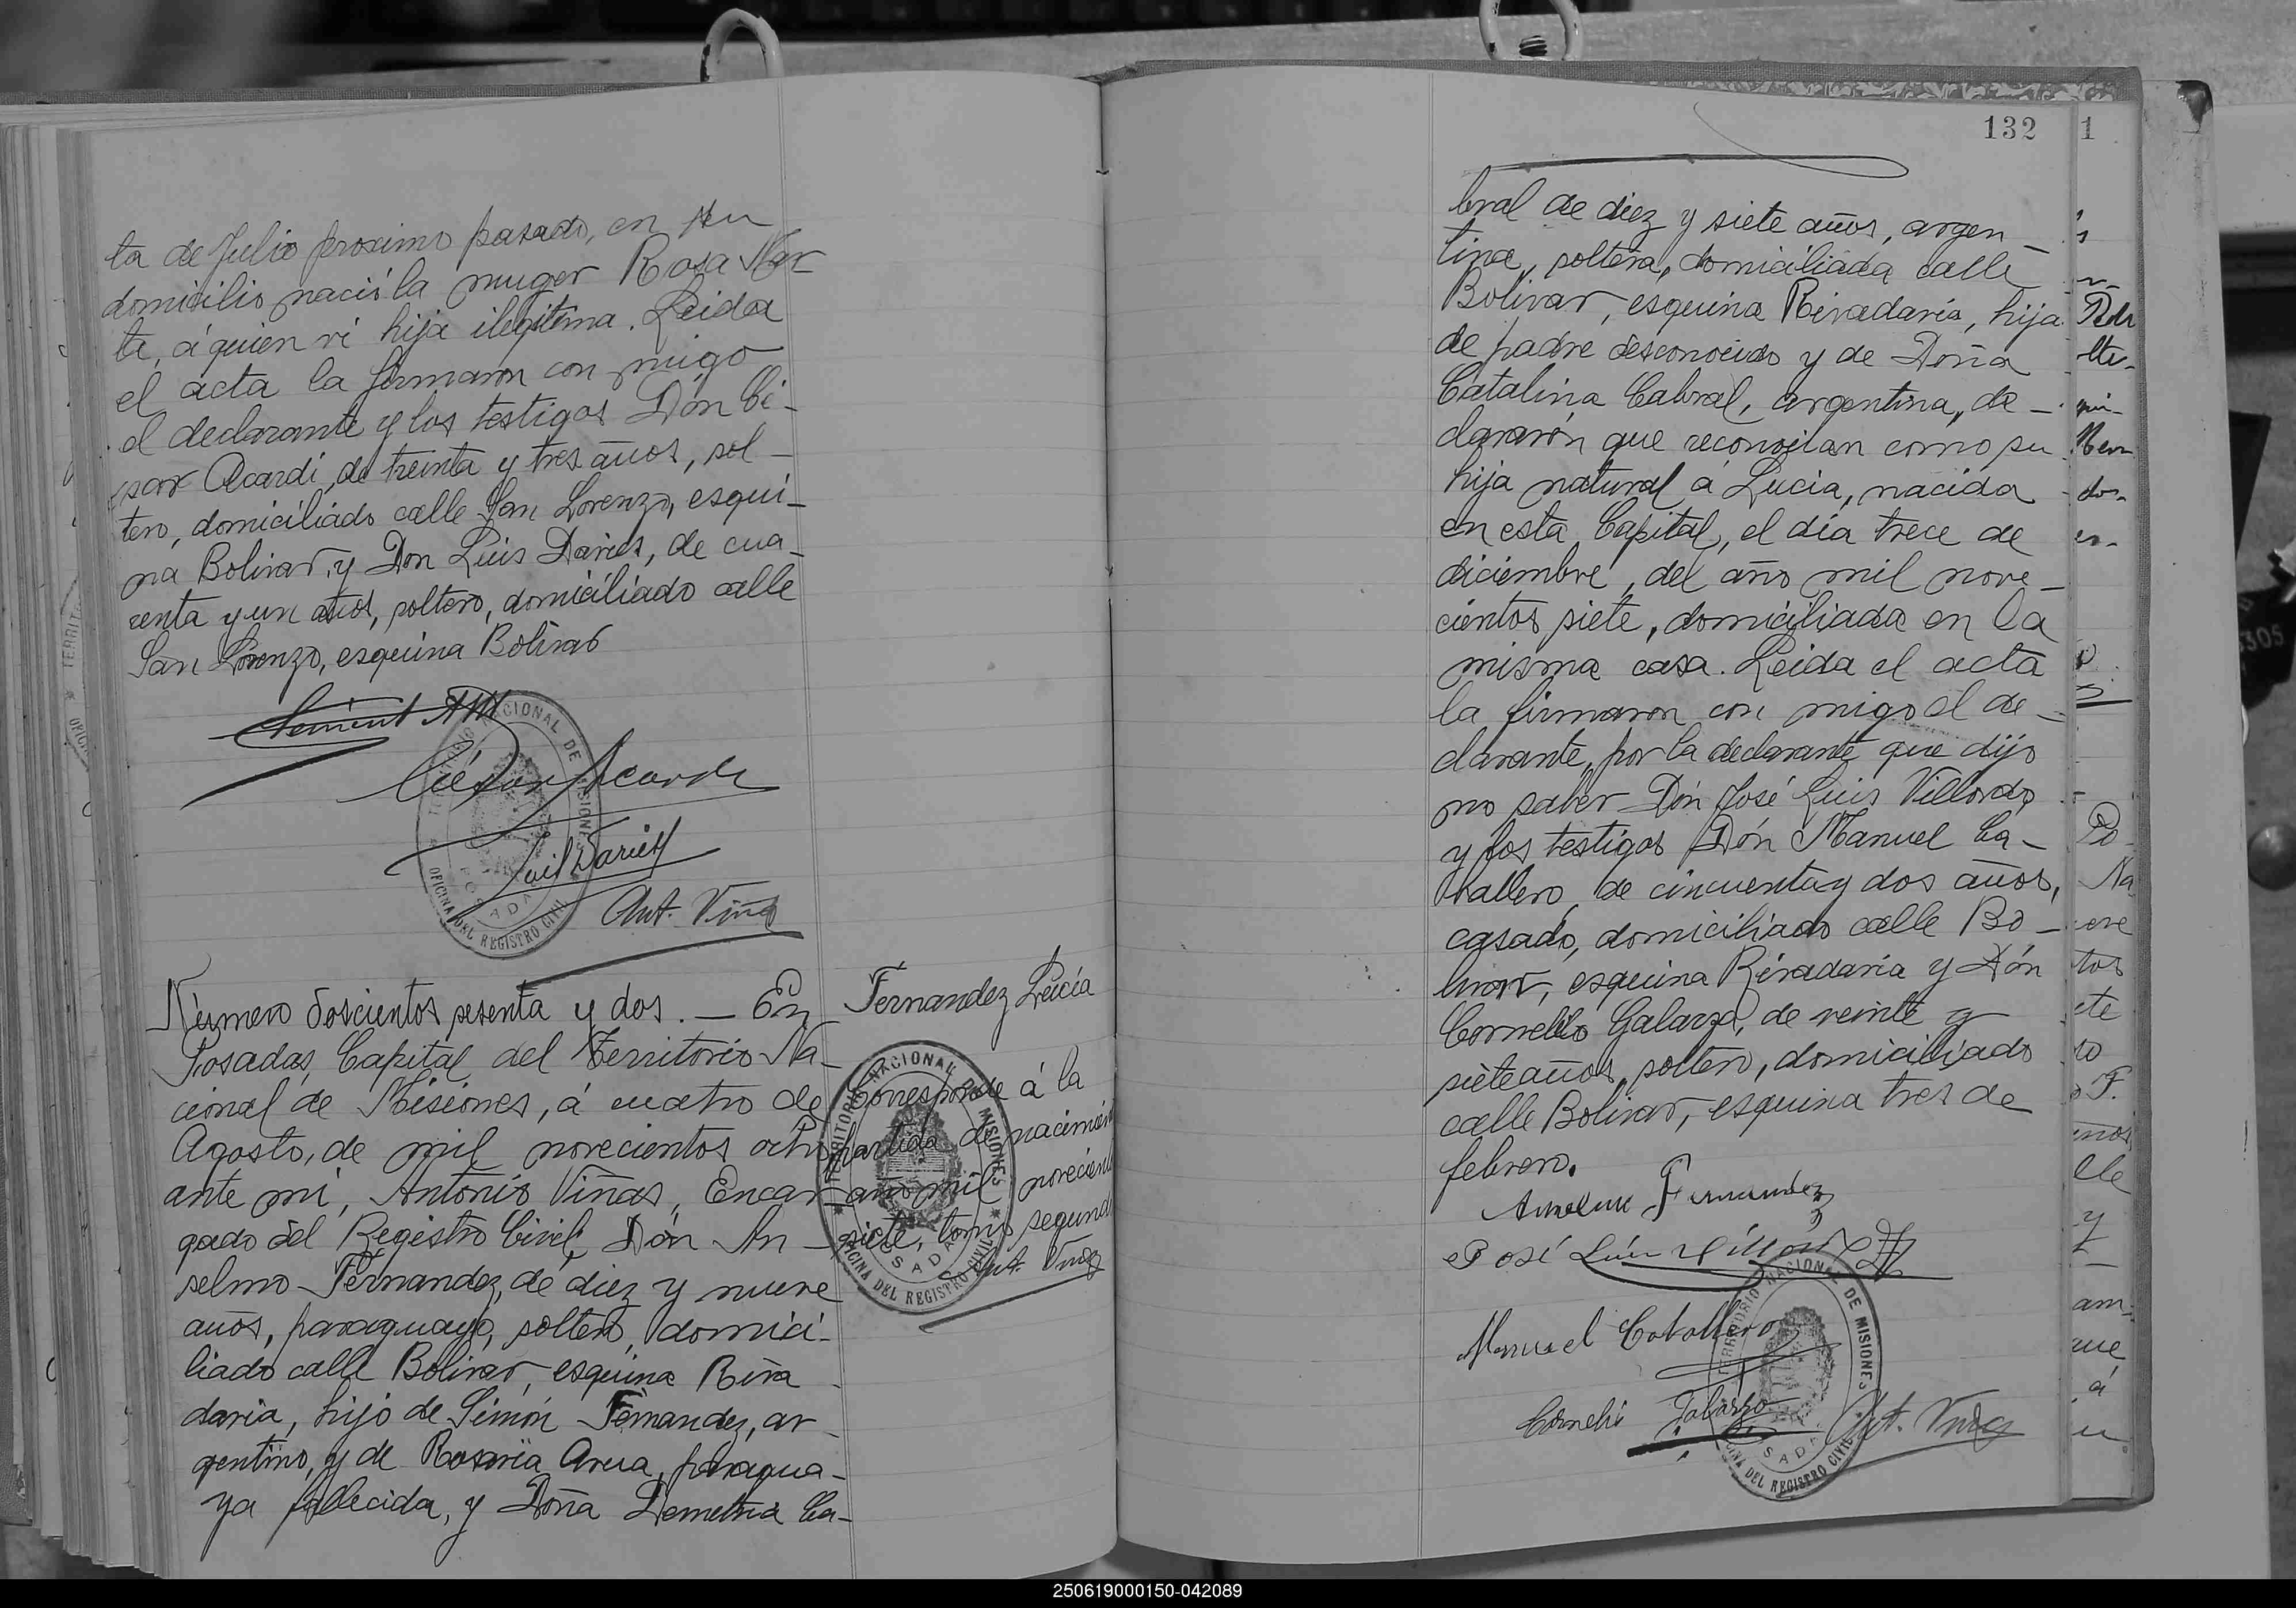 ta de Julio proximo pasado, en su
domicilio nació la muger Rosa Mar
ta, á quien ví hija ilegitima. Leida
el acta la firmaron con migo
el declarante y los testigos Dón Cé-
sar Acardi, de treinta y tres años, sol-
tero, domiciliado calle San Lorenzo, esqui-
na Bolivar, y Don Luis Darius, de cua-
renta y un años, soltero, domiciliado calle
San Lorenzo, esquina Bolivar
César Acardi
Luis Darius
Ant. Viñas
TERRITORIO NACIONAL DE MISIONES
POSADAS
OFICINA DEL REGISTRO CIVIL
Número doscientos sesenta y dos. — En
Posadas, Capital del Territorio Na-
cional de Misiones, á cuatro de
Agosto, de mil novecientos ocho
ante mí, Antonio Viñas, Encar-
gado del Registro Civil, Dón An-
selmo Fernandez, de diez y nueve
años, paraguayo, soltero, domici-
liado calle Bolivar, esquina Riva
davia, hijo de Simón Fernandez, ar
gentino, y de Rosaria Arua, paragua-
ya fallecida, y Doña Demetria Ca-
Fernandez Lucía
Corresponde á la
partida de nacimient
año mil novecient
siete, tomo segund
Ant. Viñas
TERRITORIO NACIONAL DE MISIONES
POSADAS
OFICINA DEL REGISTRO CIVIL
132
bral de diez y siete años, argen-
tina, soltera, domiciliada calle
Bolivar, esquina Rivadavia, hija
de padre desconocido y de Doña
Catalina Cabral, argentina, de-
clararón que reconocían como su
hija natural á Lucia, nacida
en esta Capital, el día trece de
diciembre, del año mil nove-
cientos siete, domiciliada en la
misma casa. Leida el acta
la firmaron con migo el de-
clarante, por la declarante que dijo
no saber Dón José Luis Villordo
y los testigos Dón Manuel Ca-
ballero, de cincuenta y dos años,
casado, domiciliado calle Bo-
livar, esquina Rivadavia y Dón
Cornelio Galarza, de veinte y
siete años, soltero, domiciliado
calle Bolivar, esquina tres de
febrero.
Anselmo Fernandez
José Luis Villordo
Manuel Caballero
Cornelio Galarza
Ant. Viñas
TERRITORIO NACIONAL DE MISIONES
POSADAS
OFICINA DEL REGISTRO CIVIL
1
250619000150-042089